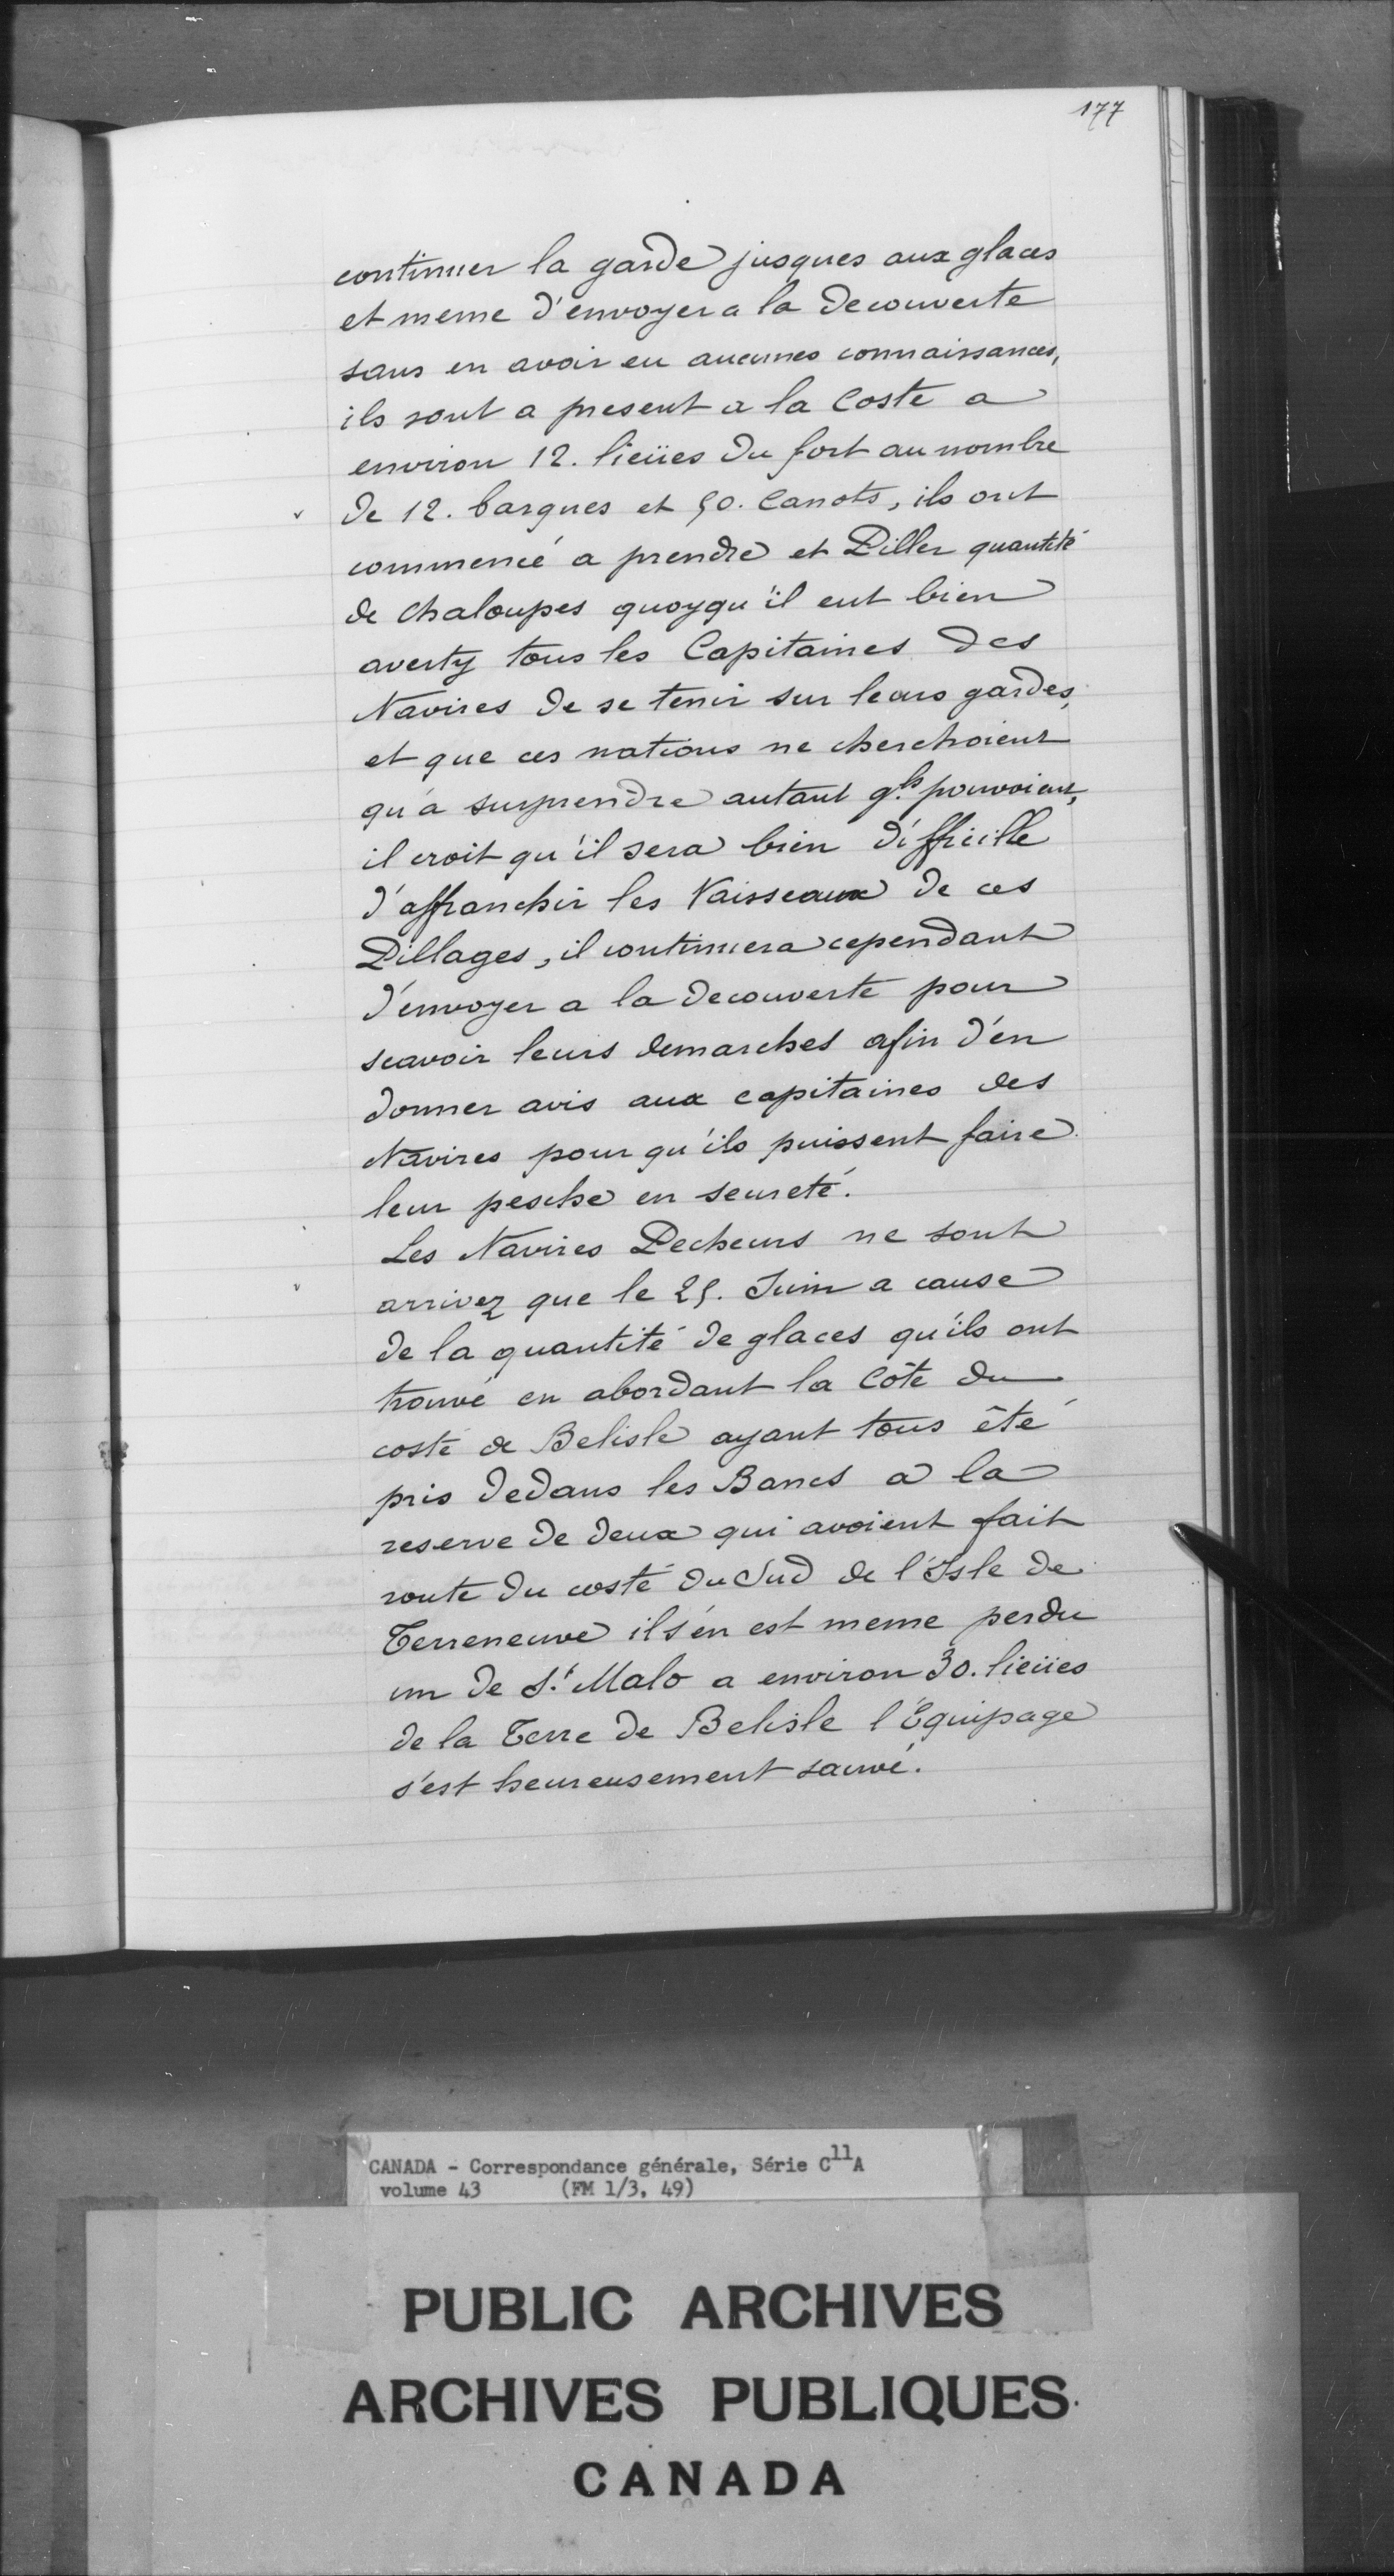 177
continuer la garde jusques aux glaces
et meme d'envoyer a la decouverte
sans en avoir eu aucunes connaissances,
ils sont a present a la Coste a
environ 12. lieües du fort au nombre
de 12. barques et 50. Canots, ils ont
commencé a prendre et Piller quantité
de Chaloupes quoyqu'il eut bien
averty tous les Capitaines des
Navires de se tenir sur leurs gardes,
et que ces nations ne cherchoient
qu'a surprendre autant q.ls pouvoient,
il croit qu'il sera bien difficille
d'affranchir les Vaisseaux de ces
Pillages, il continuera cependant
d'envoyer a la decouverte pour
scavoir leurs demarches afin d'en
donner avis aux capitaines des
Navires pour qu'ils puissent faire
leur pesche en seureté.
Les Navires Pecheurs ne sont
arrivez que le 25. Juin a cause
de la quantité de glaces qu'ils ont
trouvé en abordant la Côte du
costé de Belisle ayant tous été
pris dedans les Bancs a la
reserve de deux qui avoient fait
route du costé du Sud de l'Isle de
Terreneuve il s'en est meme perdu
un de S.t Malo a environ 30. lieües
de la Terre de Belisle l'Equipage
s'est heureusement sauvé.
CANADA - Correspondance générale, Série C11A
volume 43 (FM 1/3, 49)
PUBLIC ARCHIVES
ARCHIVES PUBLIQUES
CANADA